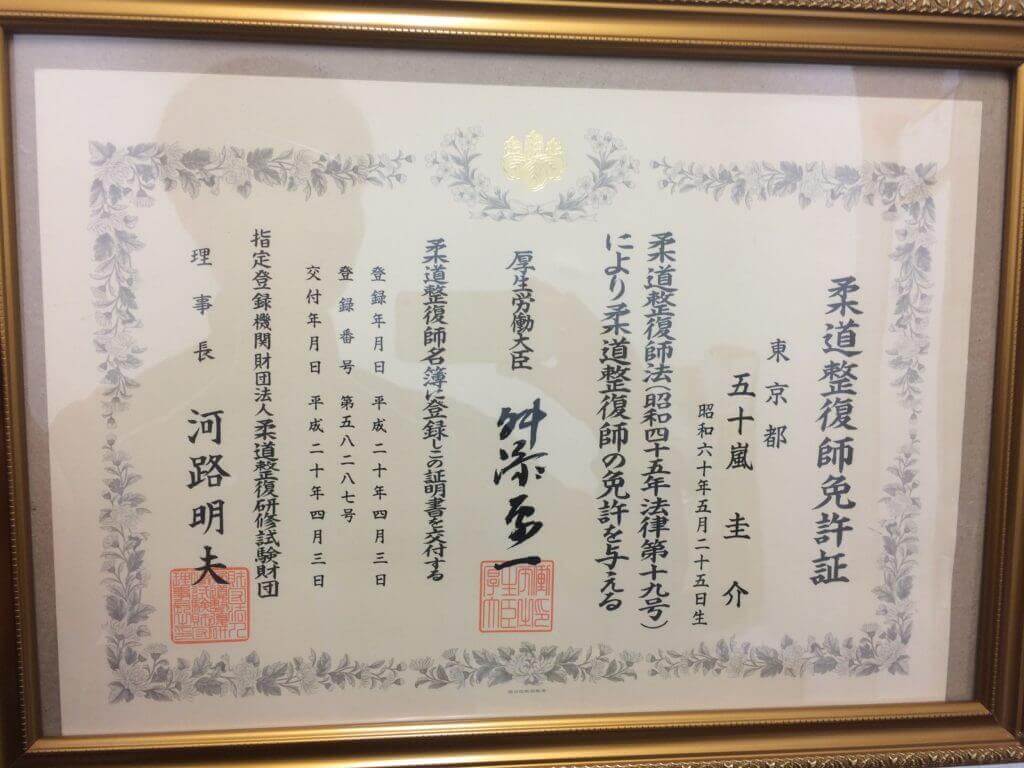 柔道整復師免許証
東京都
五十嵐圭介
昭和六十年五月二十五日生
柔道整復師法(昭和四十五年法律第十九号)
により柔道整復師の免許を与える
厚生労働大臣 舛添要一
柔道整復師名簿に登録しこの証明書を交付する
登録年月日 平成二十年四月三日
登録番号 第五八二八七号
交付年月日 平成二十年四月三日
指定登録機関財団法人柔道整復研修試験財団
理事長 河路明夫